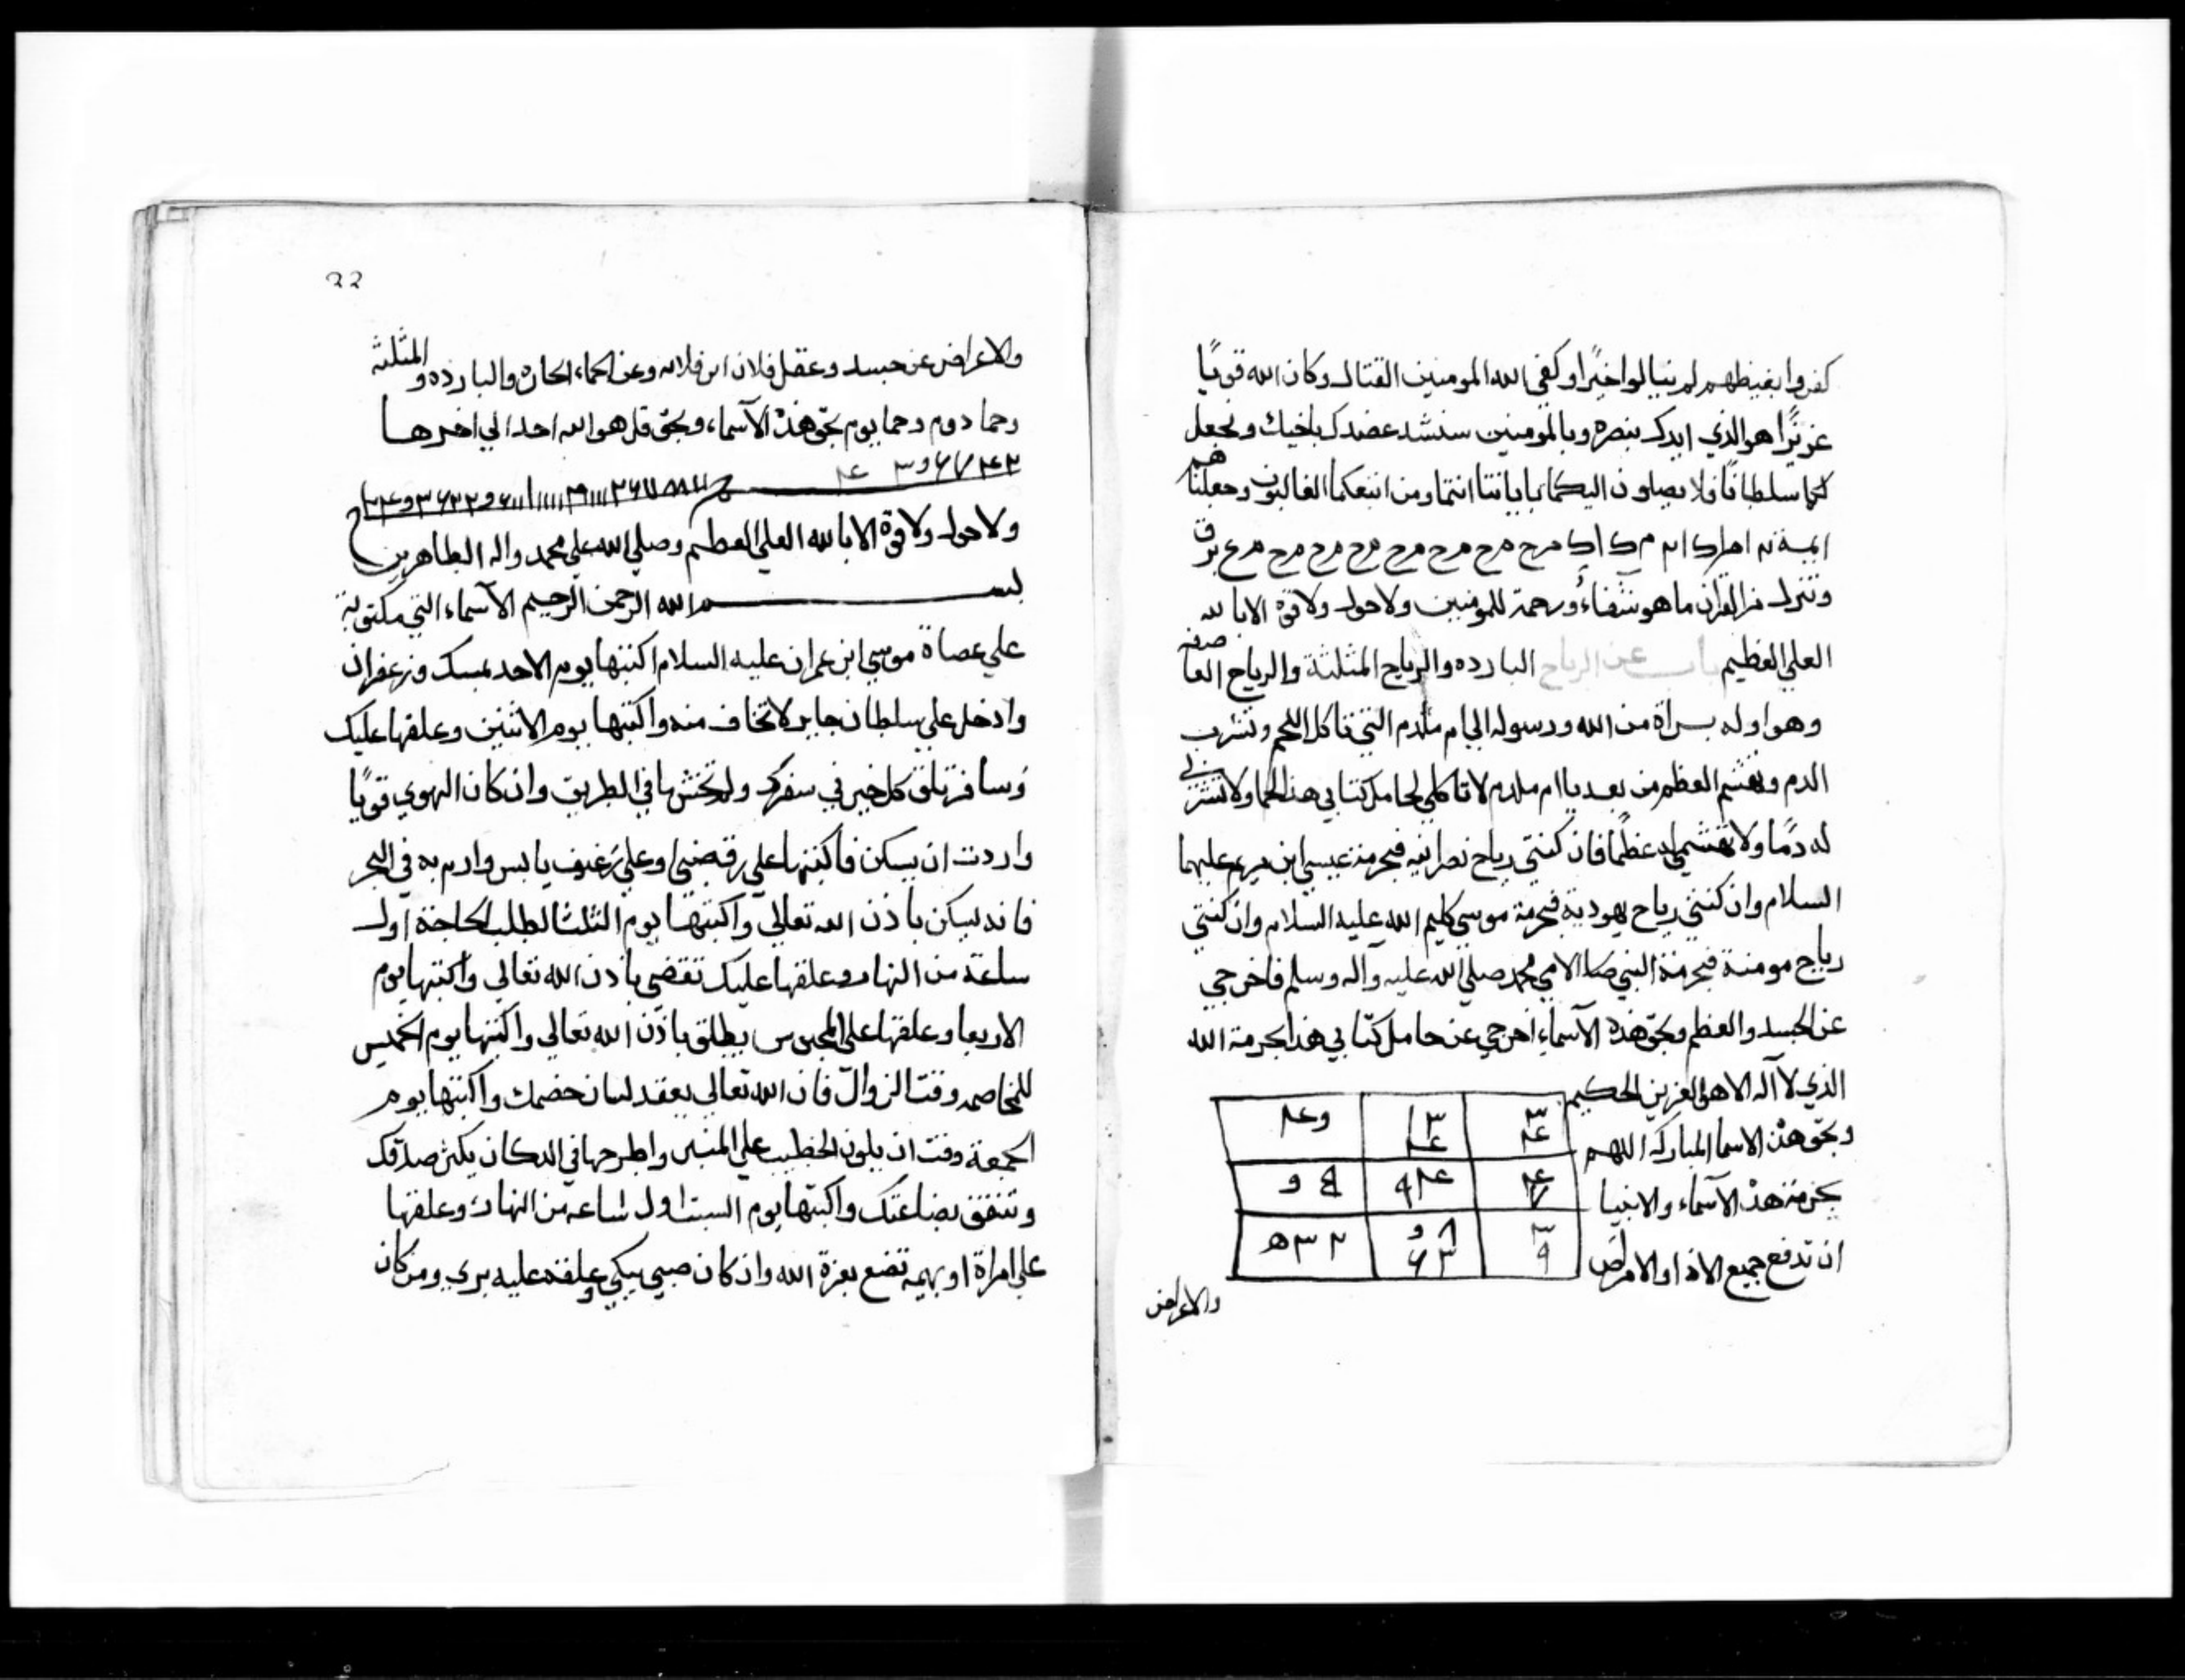 كفروا بغيظهم لم ينالوا خيرًا وكفى الله المومنين القتال وكان الله قويًا
عزيزًا هو الذي ايدك بنصره وبالمومنين سنشد عضدك باخيك ونجعل
لكما سلطانًا فلا يصلون اليكما باياتنا انتما ومن اتبعكما الغالبون وجعلناهم
ايمة
وننزل من القران ما هو شفاءٌ ورحمة للمومنين ولا حول ولا قوة الا بالله
العلي العظيم باب عن الرياح البارده والرياح المثلثة والرياح العاصفه
وهو اوله براة من الله ورسوله الي ام ملدم التي تاكل اللحم وتشرب
الدم وتهشم العظم من بعد يا ام ملدم لا تاكلي لحامل كتابي هذا لحما ولا تشربي
له دمًا ولا تهشمي له عظمًا فان كنتي رياح نصرانيه فبحرمة عيسي ابن مريم عليهما
السلام وان كنتي رياح يهودية فبحرمة موسي كليم الله عليه السلام وان كنتي
رياح مومنة فبحرمة النبي الامي محمد صلي الله عليه وآله وسلم فاخرجي
عن الجسد والعظم وبحق هذه الآسماء اخرجي عن حامل كتابي هذا بحرمة الله
الذي لا آله الا هو العزيز الحكيم
وبحق هذه الاسما المباركه اللهم
بحرمة هذه الآسماء والانبيا
ان تدفع جميع الاذا والامراض
والاعراض
والاعراض عن جسد وعقل فلان ابن فلانه وعن الحماء الحاره والبارده والمثلثه
وحما دوم وحما يوم بحق هذه الآسماء وبحق قل هو الله احد الي اخرها
ولا حول ولا قوة الا بالله العلي العظيم وصلي الله علي محمد واله الطاهرين
بسم الله الرحمن الرحيم الآسماء التي مكتوبة
علي عصاة موسي ابن عمران عليه السلام اكتبها يوم الاحد بمسك وزعفران
وادخل علي سلطان جاير لا تخاف منه واكتبها يوم الاثنين وعلقها عليك
وسافر تلق كل خير في سفرك ولم تخش ما في الطريق وان كان الهوي قويًا
واردت ان يسكن فاكتبها علي وعلي رغيف يابس وارم به في البحر
فانه يسكن باذن الله تعالي واكتبها يوم الثلثا لطلب الحاجة اول
ساعة من النهار وعلقها عليك تقضي باذن الله تعالي واكتبها يوم
الاربعا وعلقها علي المحبوس يطلق باذن الله تعالي واكتبها يوم الخميس
للمخاصمه وقت الزوال فان الله تعالي يعقد لسان خصمك واكتبها يوم
الجمعة وقت ان يكون الخطيب علي المنبر واطرحها في الدكان يكثر صدقك
وتنفق بضاعتك واكتبها يوم السبت اول ساعه من النهار وعلقها
علي امراة او بهيمه تضع بعزة الله وان كان صبي يبكي وعلقته عليه بري ومن كان